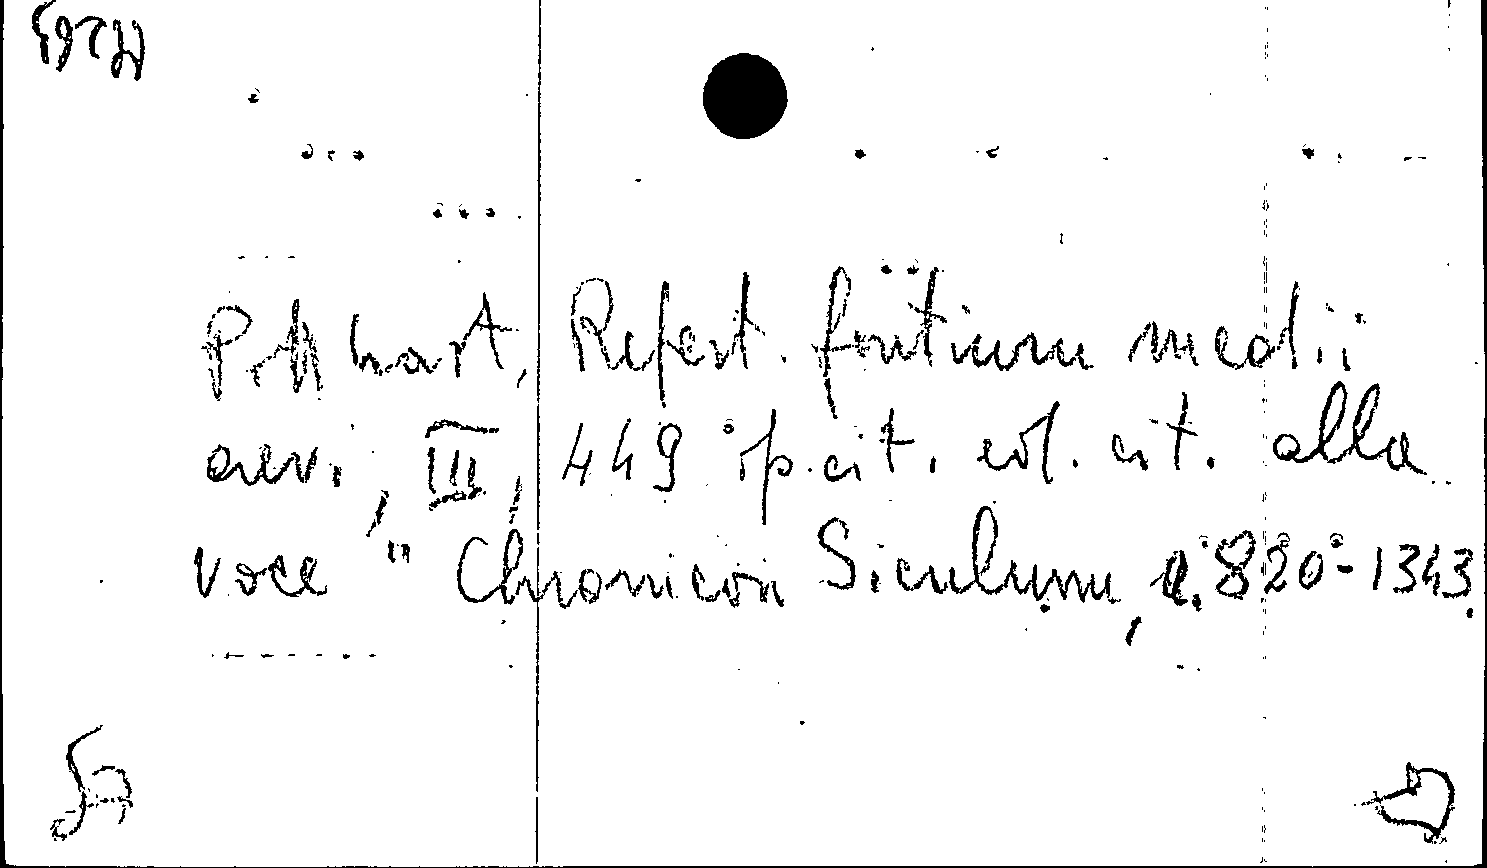 Potthast, Repert. fontium medii
aevi, III, 449 op. cit. ed. cit. alla
voce "Chronicon Siculum, a. 820-1343.